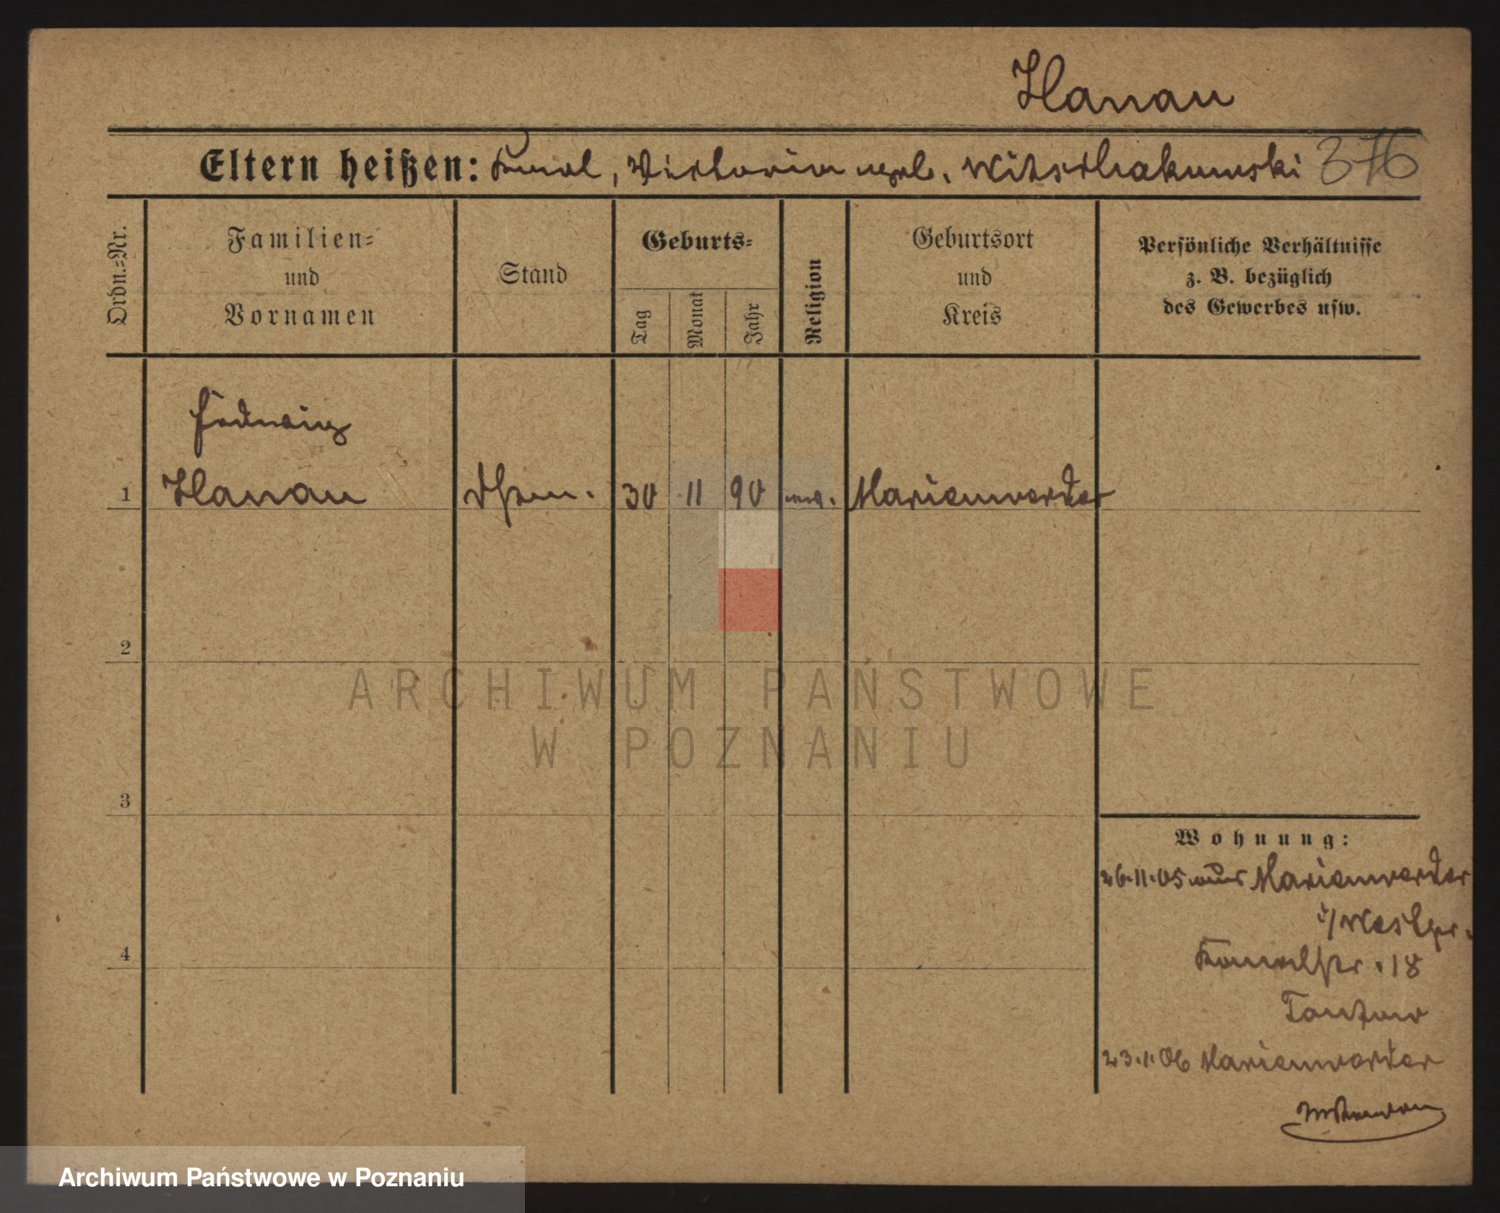 Hanau
Eltern heißen: Karl, Victoria geb. 376
Ordn.-Nr.
Familien-
und
Vornamen
Stand
Geburts-
Tag
Monat
Jahr
Religion
Geburtsort
und
Kreis
Persönliche Verhältnisse
z. B. bezüglich
des Gewerbes usw.
Hedwig
1 Hanau 30 11 90 Marienwerder
2
3
4
Wohnung:
26.11.05 aus Marienwerder
i/Westpr.
18
23.1.06 Marienwerder
ARCHIWUM PAŃSTWOWE
W POZNANIU
Archiwum Państwowe w Poznaniu